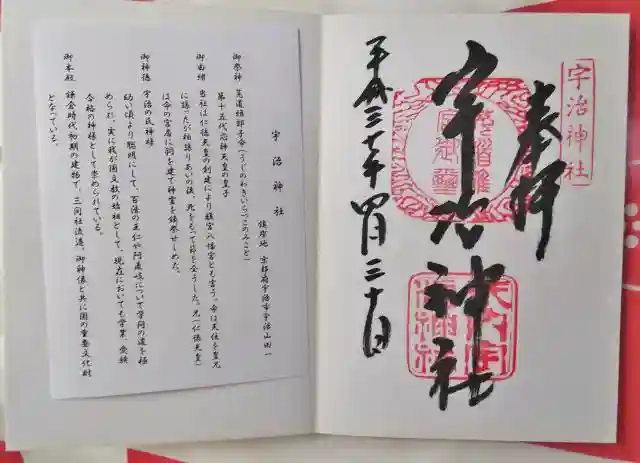 宇治神社
奉拝
宇治神社
平成三十年四月三十日
宇治神社
鎮座地 京都府宇治市宇治山田一
御祭神 菟道稚郎子命(うじのわきいらつこのみこと)
第十五代応神天皇の皇子
御由緒 当社は仁徳天皇の創建により離宮八幡宮とも言う。命は天位を皇兄
に譲ったが相譲りあいの後、死をもって節を全うした。兄(仁徳天皇)
は命の宮居に祠を建て神霊を鎮祭せしめた。
御神徳 宇治の氏神様
幼い頃より聡明にして、百済の王仁や阿直岐について学問の道を極
められ、実に我が国文教の始祖として、現在においても学業、受験
合格の神様として崇められている。
御本殿 鎌倉時代初期の建物で、三間社流造。御神像と共に国の重要文化財
となっている。